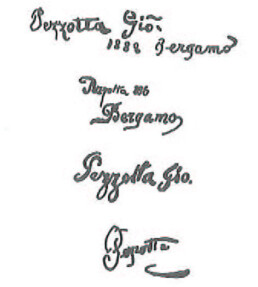 Pezzotta Gio.
1888 Bergamo
Pezzotta 886
Bergamo
Pezzotta Gio.
Pezzotta